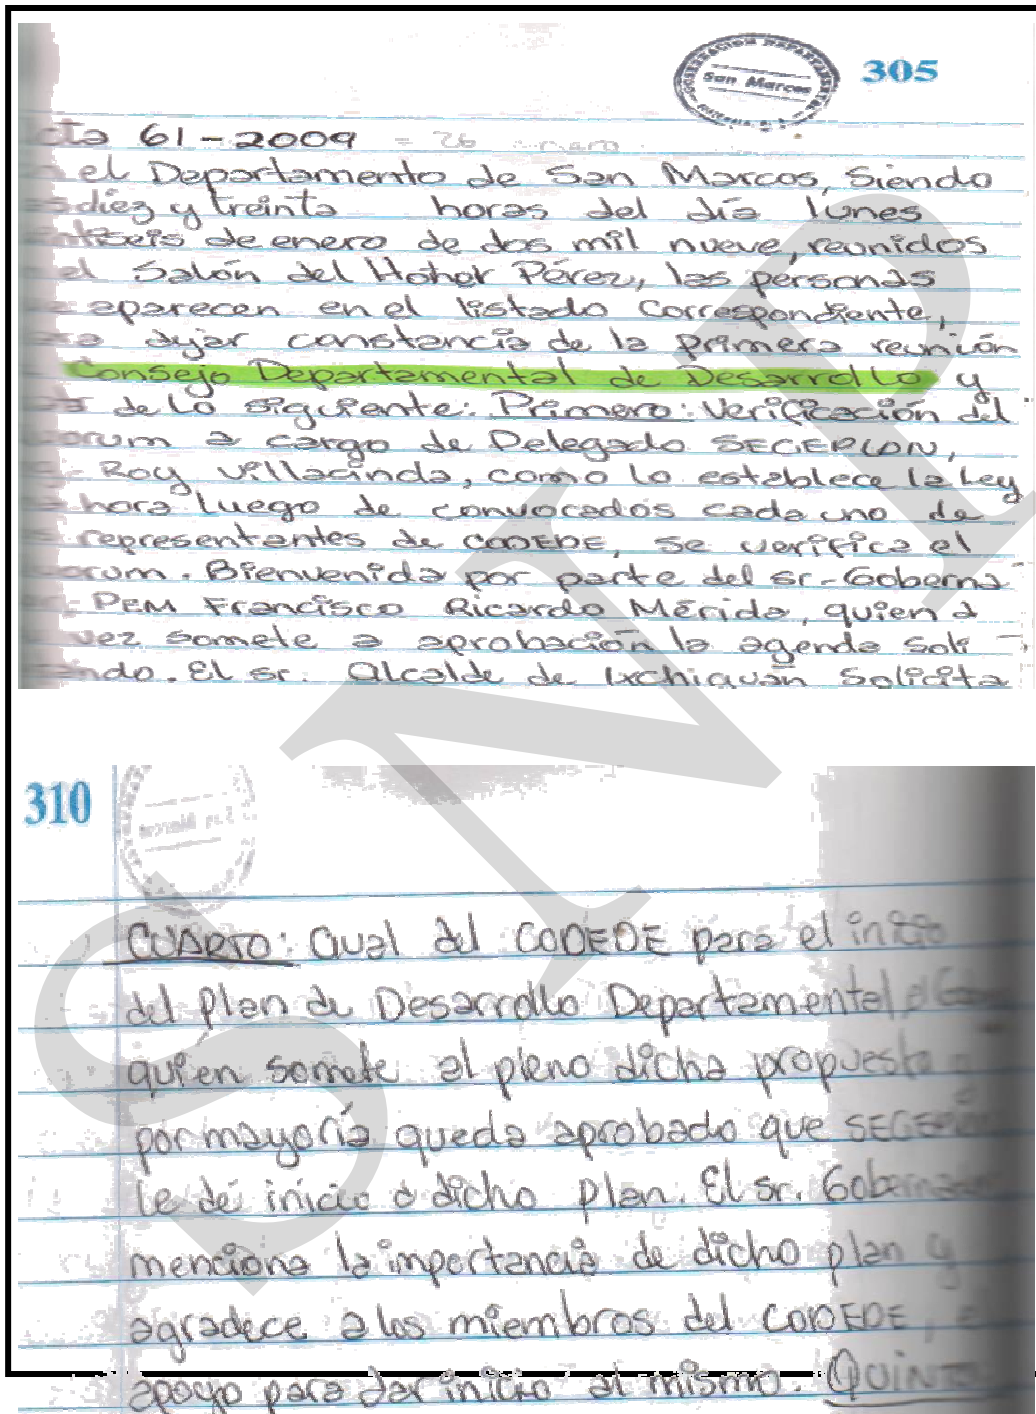 San Marcos
305
cta 61-2009
el Departamento de San Marcos, siendo
diez y treinta horas del día lunes
de enero de dos mil nueve, reunidos
el Salón del Hotel Pérez, las personas
aparecen en el listado correspondiente,
dejar constancia de la primera reunión
Consejo Departamental de Desarrollo y
de lo siguiente: Primero: Verificación del
orum a cargo de Delegado SEGEPLAN,
Roy Villacinda, como lo establece la Ley
hora luego de convocados cada uno de
representantes de CODEDE, se verifica el
orum. Bienvenida por parte del sr. Goberna
PEM Francisco Ricardo Mérida, quien a
vez somete a aprobación la agenda soli
ndo. El sr. Alcalde de Ixchiguán solicita
310
CUARTO: Aval del CODEDE para el inicio
del plan de Desarrollo Departamental
quien somete al pleno dicha propuesta
por mayoría queda aprobado que SEGEPLAN
le dé inicio a dicho plan. El sr. Gobernador
menciona la importancia de dicho plan y
agradece a los miembros del CODEDE,
apoyo para dar inicio al mismo. QUINTO
SNIP